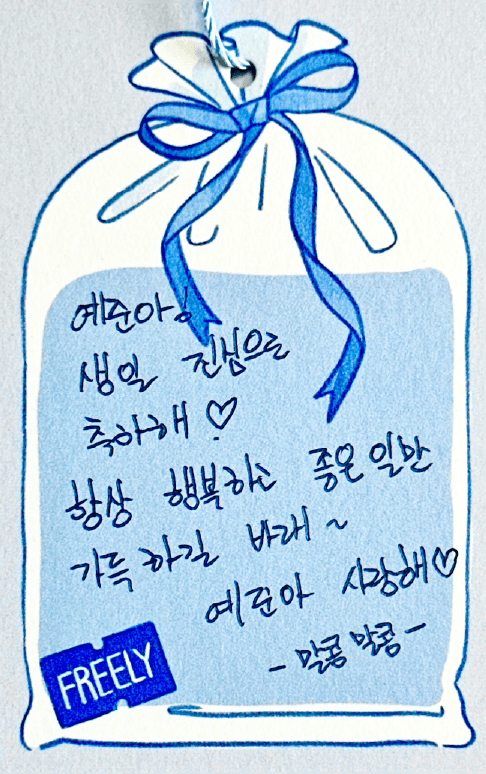 예준아!
생일 진심으로
축하해 ♡
항상 행복하고 좋은 일만
가득하길 바래 ~
예준아 사랑해♡
- 말콩말콩 -
FREELY